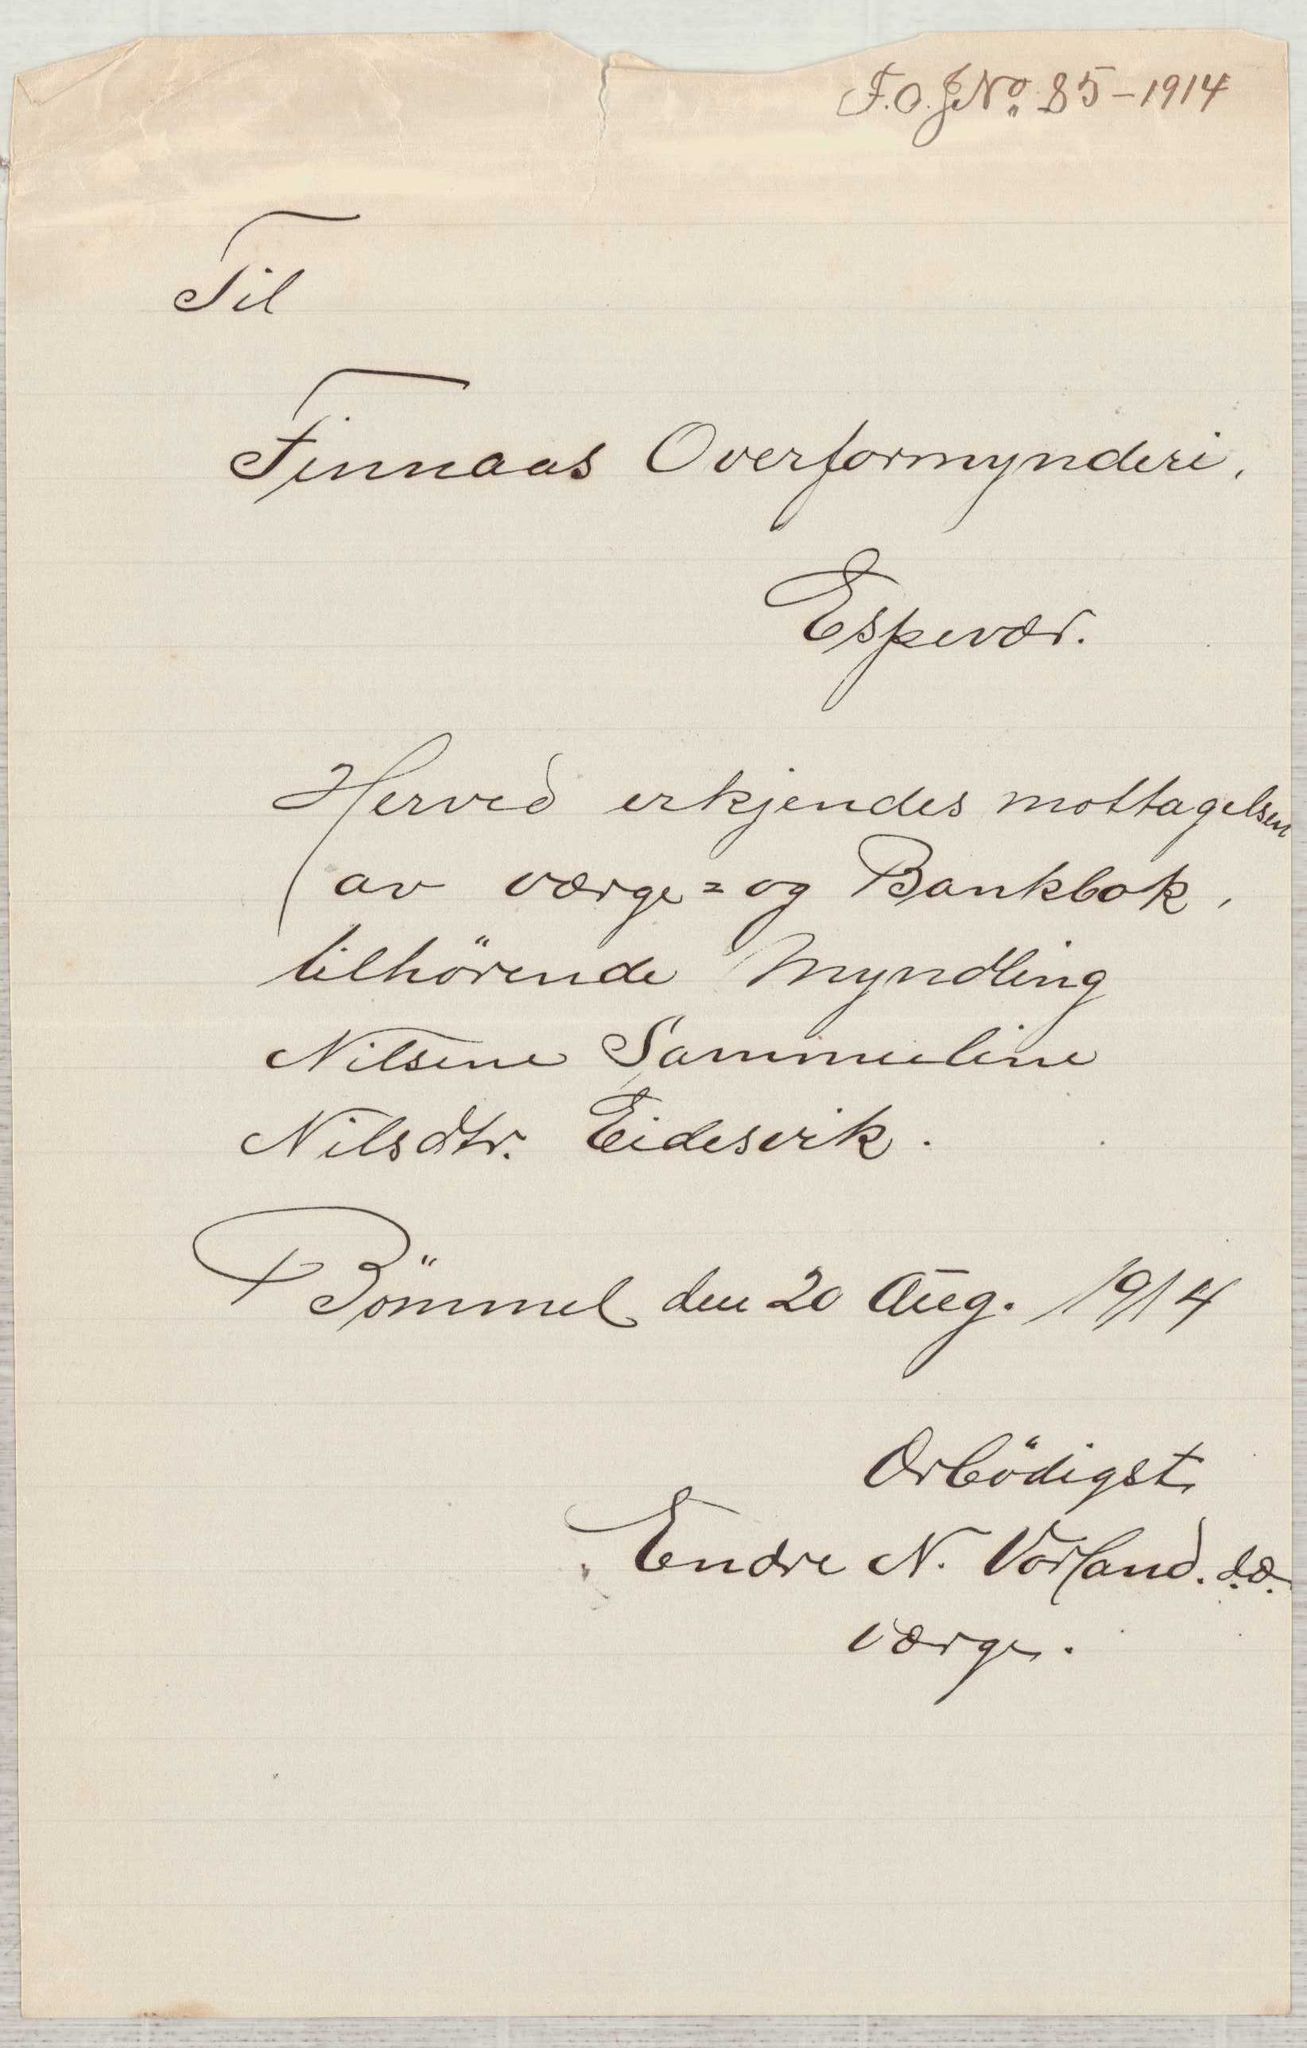 F.O.J.No. 85-1914
Til
Finnaas Overformynderi.
Espevær.
Herved erkjendes mottagelsen
av værge= og Bankbok,
tilhörende Myndling
Nilsine Sammeline
Nilsdtr. Eidesvik.
Bömmel den 20 Aug. 1914
Ærbödigst
Endre N. Vorland. d.æ.
værge.